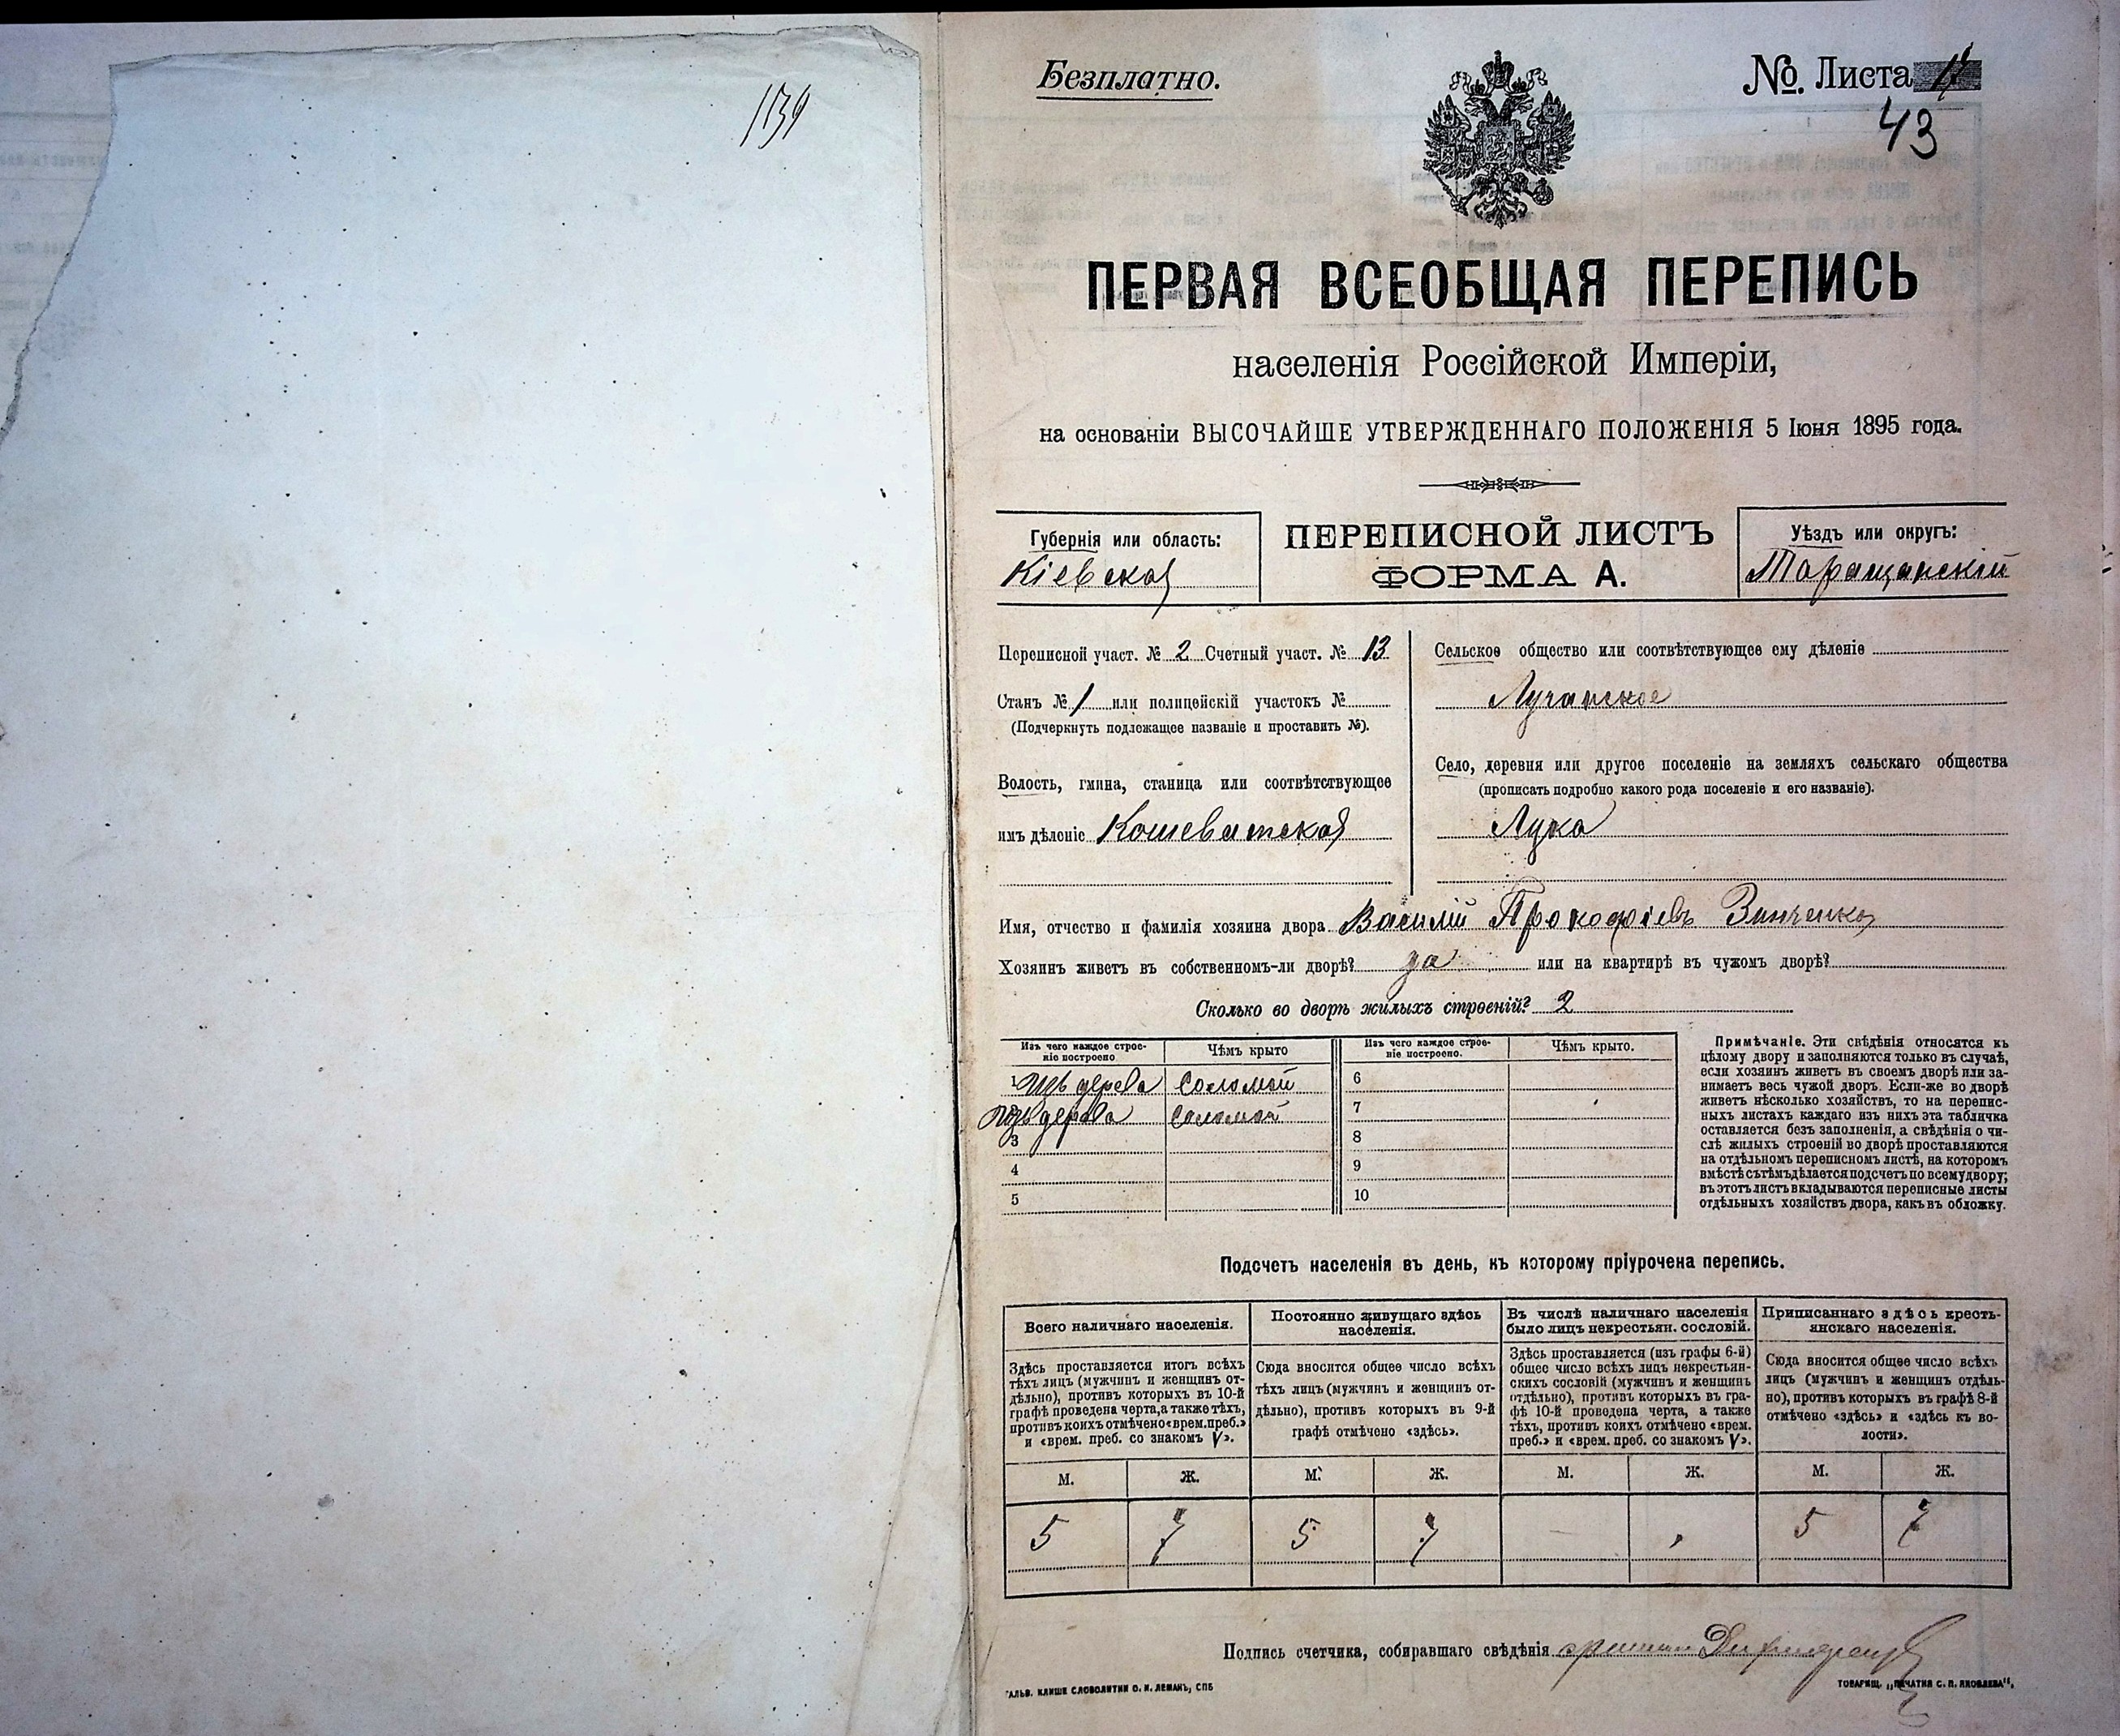 139
Безплатно.
№. Листа
43
ПЕРВАЯ ВСЕОБЩАЯ ПЕРЕПИСЬ
населенія Россійской Имперіи,
на основаніи ВЫСОЧАЙШЕ УТВЕРЖДЕННАГО ПОЛОЖЕНІЯ 5 Іюня 1895 года.
Губернія или область:
Кіевская
ПЕРЕПИСНОЙ ЛИСТЪ
ФОРМА А.
Уѣздъ или округъ:
Таращанскій
Переписной участ. № 2 Счетный участ. № 13
Станъ № 1 или полицейскій участокъ №
(Подчеркнуть подлежащее названіе и проставить №).
Волость, гмина, станица или соотвѣтствующее
имъ дѣленіе Кошеватская
Сельское общество или соотвѣтствующее ему дѣленіе
Лучанское
Село, деревня или другое поселеніе на земляхъ сельскаго общества
(прописать подробно какого рода поселеніе и его названіе).
Лука
Имя, отчество и фамилія хозяина двора Василій Прокофіевъ Зинченко
Хозяинъ живетъ въ собственномъ-ли дворѣ? да или на квартирѣ въ чужомъ дворѣ?
Сколько во дворѣ жилыхъ строеній? 2
Изъ чего каждое строе-
ніе построено
Чѣмъ крыто
Изъ чего каждое строе-
ніе построено.
Чѣмъ крыто.
1 Изъ дерева Соломой 6
Изъ дерева Соломой 7
3 8
4 9
5 10
Примѣчаніе. Эти свѣдѣнія относятся къ
цѣлому двору и заполняются только въ случаѣ,
если хозяинъ живетъ въ своемъ дворѣ или за-
нимаетъ весь чужой дворъ. Если-же во дворѣ
живетъ нѣсколько хозяйствъ, то на перепис-
ныхъ листахъ каждаго изъ нихъ эта табличка
оставляется безъ заполненія, а свѣдѣнія о чи-
слѣ жилыхъ строеній во дворѣ проставляются
на отдѣльномъ переписномъ листѣ, на которомъ
вмѣстѣ съ тѣмъ дѣлается подсчетъ по всему двору;
въ этотъ листъ вкладываются переписные листы
отдѣльныхъ хозяйствъ двора, какъ въ обложку.
Подсчетъ населенія въ день, къ которому пріурочена перепись.
Всего наличнаго населенія.
Здѣсь проставляется итогъ всѣхъ
тѣхъ лицъ (мужчинъ и женщинъ от-
дѣльно), противъ которыхъ въ 10-й
графѣ проведена черта, а также тѣхъ,
противъ коихъ отмѣчено «врем. преб.»
и «врем. преб. со знакомъ V».
Постоянно живущаго здѣсь
населенія.
Сюда вносится общее число всѣхъ
тѣхъ лицъ (мужчинъ и женщинъ от-
дѣльно), противъ которыхъ въ 9-й
графѣ отмѣчено «здѣсь».
Въ числѣ наличнаго населенія
было лицъ некрестьян. сословій.
Здѣсь проставляется (изъ графы 6-й)
общее число всѣхъ лицъ некрестьян-
скихъ сословій (мужчинъ и женщинъ
отдѣльно), противъ которыхъ въ гра-
фѣ 10-й проведена черта, а также
тѣхъ, противъ коихъ отмѣчено «врем.
преб.» и «врем. преб. со знакомъ V».
Приписаннаго здѣсь кресть-
янскаго населенія.
Сюда вносится общее число всѣхъ
лицъ (мужчинъ и женщинъ отдѣль-
но), противъ которыхъ въ графѣ 8-й
отмѣчено «здѣсь» и «здѣсь къ во-
лости».
М. Ж. М. Ж. М. Ж. М. Ж.
5 7 5 7 — 5 7
Подпись счетчика, собиравшаго свѣдѣнія
ГАЛЬВ. КЛИШЕ СЛОВОЛИТНИ О. И. ЛЕМАНЪ, СПБ
ТОВАРИЩ. „ПЕЧАТНЯ С. П. ЯКОВЛЕВА“.